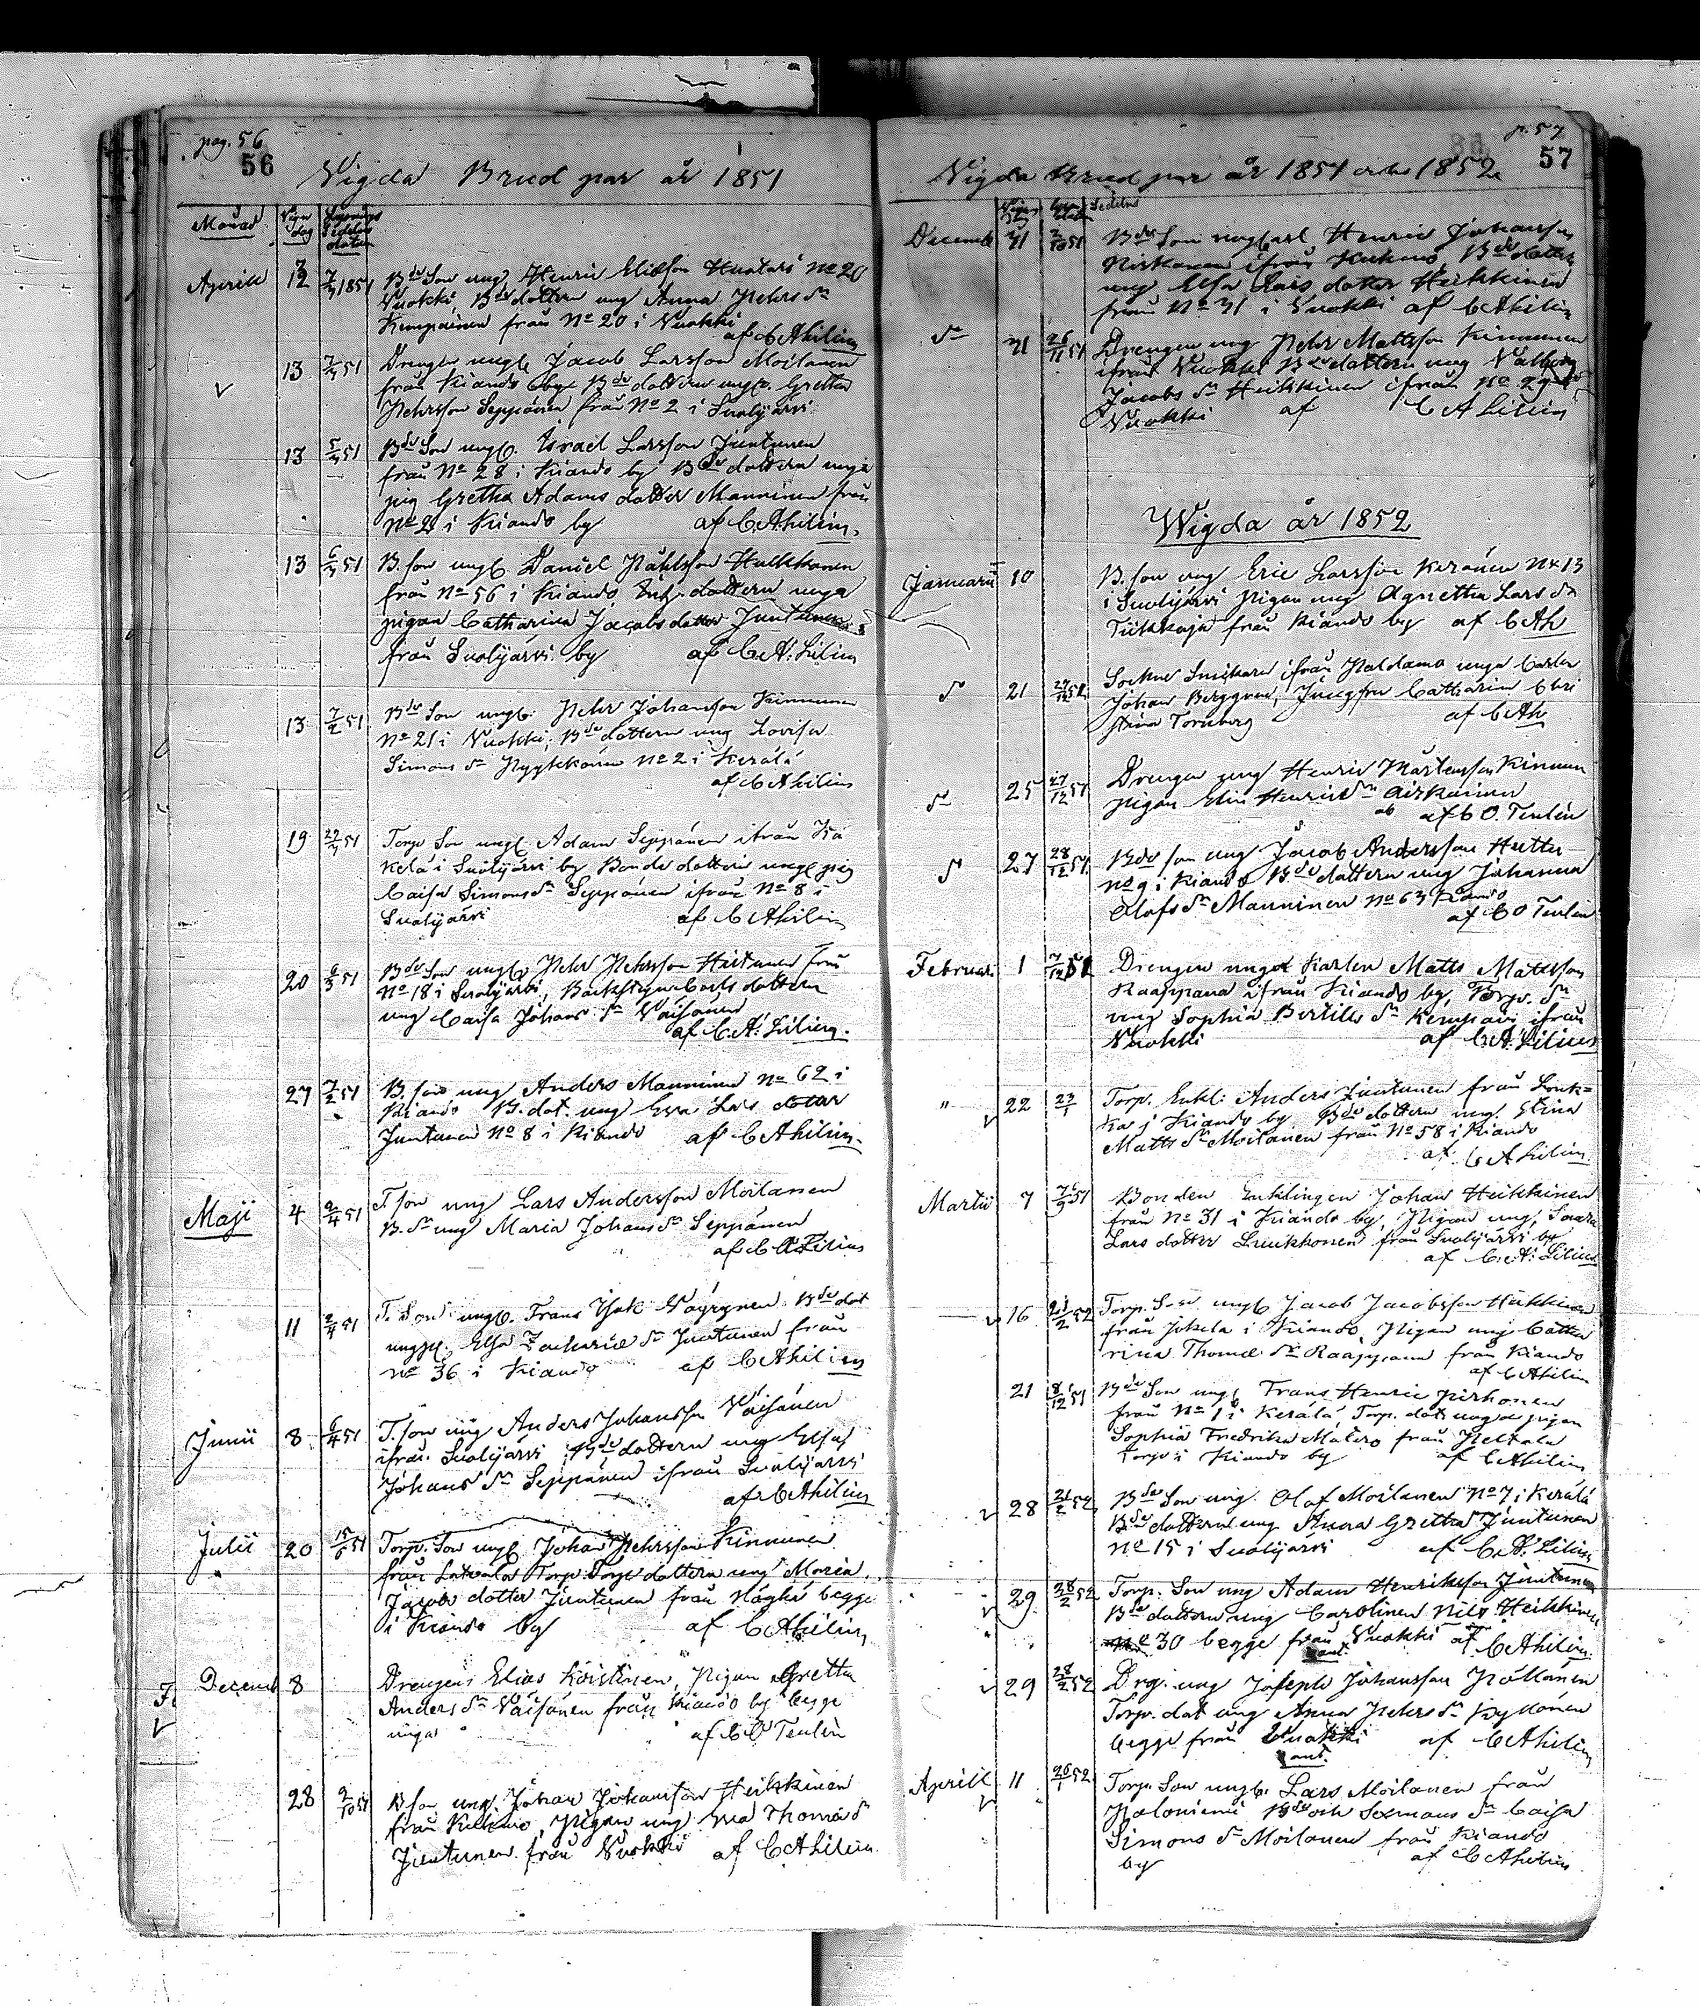 pag. 56
56
Vigda Brud par år 1851
Månad
Vign dag
Lysnings Sedelns datum
Aprill 12 7/3 1851 Bde Son ung Henric Eliesson Huotari No 20
Vuokki, Bde dottern ung Anna Pehrs dr
Kemppainen från No 20 i Vuokki
af C A Lilius
13 7/3 51 Drengen ungk Jacob Larsson Moilanen
från Kiando by Bde dottern unga Gretha
Pehrsson Seppänen från No 2 i Suolijärvi
13 5/3 51 Bde Son ungk. Israel Larsson Juntunen
från No 28 i Kiando by Bde dottern unga
pig Gretha Adams dotter Manninen från
No 28 i Kiando by af C A Lilius.
13 6/3 51 B. son ungk Daniel Påhlsson Hulkkonen
från No 56 i Kiando dottern unga
pigan Catharina Jacobs dotter Juntunen
från Suolijärvi by af C. A. Lilius
13 7/2 51 Bde Son ungk. Pehr Johansson Kinnunen
No 21 i Vuokki, Bde dottern ung Lovisa
Simons dr Pyykkönen No 2 i Kerälä
af C A Lilius
19 22/3 51 Torp Son ungk. Adam Seppänen ifrån Ka
kelä i Suolijärvi by Bonde dottern ungk pig
Caisa Simons dr Seppänen ifrån No 8 i
Suolijärvi af C A Lilius
20 6/3 51 Bde Son ungk Pehr Pehrsson Heikkinen från
No 18 i Suolijärvi, dottern
ung Caisa Johans dr Väisänen
af C. A. Lilius.
27 7/2 51 B. son ung Anders Manninen No 62 i
Kiando B. dot. ung Eva Lars dotter
Juntunen No 8 i Kiando af C A Lilius.
Maji 4 2/4 51 T. son ung Lars Andersson Moilanen
B. dr ung Maria Johans dr Seppänen
af C A Lilius
11 2/4 51 T. Son ungk. Frans Isak Väyrynen Bde dot
ungk. Elsa Zacharie dr Juntunen från
No 36 i Kiando af C A Lilius
Junii 8 6/4 51 T. son ung Anders Johansson Väisänen
ifrån Suolijärvi Bde dottern ung Elsa
Johans dr Seppänen ifrån Suolijärvi
af C A Lilius
Julii 20 15/6 51 Torp. Son ungk Johan Pehrsson Kinnunen
från Latvala Torp Torp dottern ung Maria
Jacobs dotter Juntunen från begge
i Kiando by af C A Lilius
Decemb 8 Drengen Elias Koistinen, Pigan Gretha
Anders dr Väisänen från Kiando by begge
unga af C O Teulin
28 2/10 51 B son ung Johan Johansson Heikkinen
från, Pigan ung Eva Thomæ dr
Juntunen från Vuokki af C A Lilius
p. 57
57
Vigda Brud par år 1851 och 1852
Sedelns
Decemb 31 2/10 51 Bde Son ungkarl, Henric Johansson
ifrån, Bde dotter
ung Elsa Lars dotter Heikkinen
från No 31 i Vuokki af C A Lilius
dr 31 26/11 51 Drengen ung Pehr Mattsson Kinnunen
ifrån Vuokki Bde dottern ung Valborg
Jacobs dr Heikkinen ifrån No 29
Vuokki af C A Lilius
Wigda år 1852
Januarii 10 B. son ung Eric Larsson Keränen No 13
i Suolijärvi Pigan ung Agnetha Lars dr
Tiikkaja från Kiando by af C A L
dr 21 Sockne Snickarn ifrån Paldamo unga Carlen
Johan Berggren, Jungfru Catharina Chri
stina Tornberg af C A L
dr 25 27/12 51 Drengen ung Henric Mårtensson Kinnun
pigan Elin Henrics dr
af C O Teulin
dr 27 28/12 51 Bde son ung Jacob Andersson Huttu
No 9 i Kiando Bde dottern ung Johanna
Olofs dr Manninen No 63 Kiando
af C O Teulin
Februar 1 7/12 51 Drengen unga Karlen Matts Mattsson
Raappana ifrån Kiando by, Torp. dr
ung Sophia Bertils dr Kemppain ifrån
Vuokki af C A Lilius
" 22 23/1 Torp. Enkl: Anders Juntunen från Louk=
ka i Kiando by Bde dottern ung. Stina
Matts dr Moilanen från No 58 i Kiando
af C A Lilius
Martii 7 51 Bonden Enklingen Johan Heikkinen
från No 31 i Kiando by, Pigan ung, Saara
Lars dotter Luukkonen från Suolijärvi by
af C. A. Lilius
16 21/2 52 Torp. Son ungk Jacob Jacobsson Heikkinen
från Jokela i Kiando, Pigan ung Catha
rina Thomæ dr Raappana från Kiando
af C A Lilius
21 8/12 51 Bde Son ungk Frans Henric Pirhonen
från No 1 i Kerälä, Torp. dot. unga pigan
Sophia Fredrika Matero från Peltola
Torp i Kiando by af C A Lilius
28 21/2 52 Bde Son ung. Olof Moilanen No 7 i Kerälä
Bde dottern ung Anna Gretha Juntunen
No 15 i Suolijärvi af C. A. Lilius
29 28/2 52 Torp. Son ung Adam Henriksson Juntunen
Bde dottern ung Carolinen Nils Heikkinen
No 30 begge från Vuokki af C A Lilius
29 28/2 52 Drg. ung Joseph Johansson Pöllänen
Torp. dot ung Anna Pehrs dr Kykänen
begge från Vuokki af C A Lilius
Aprill 11 26/1 52 Torp. Son ungk. Lars Moilanen från
Paloniemi dr Caisa
Simons dr Moilanen från Kiando
by af C A Lilius